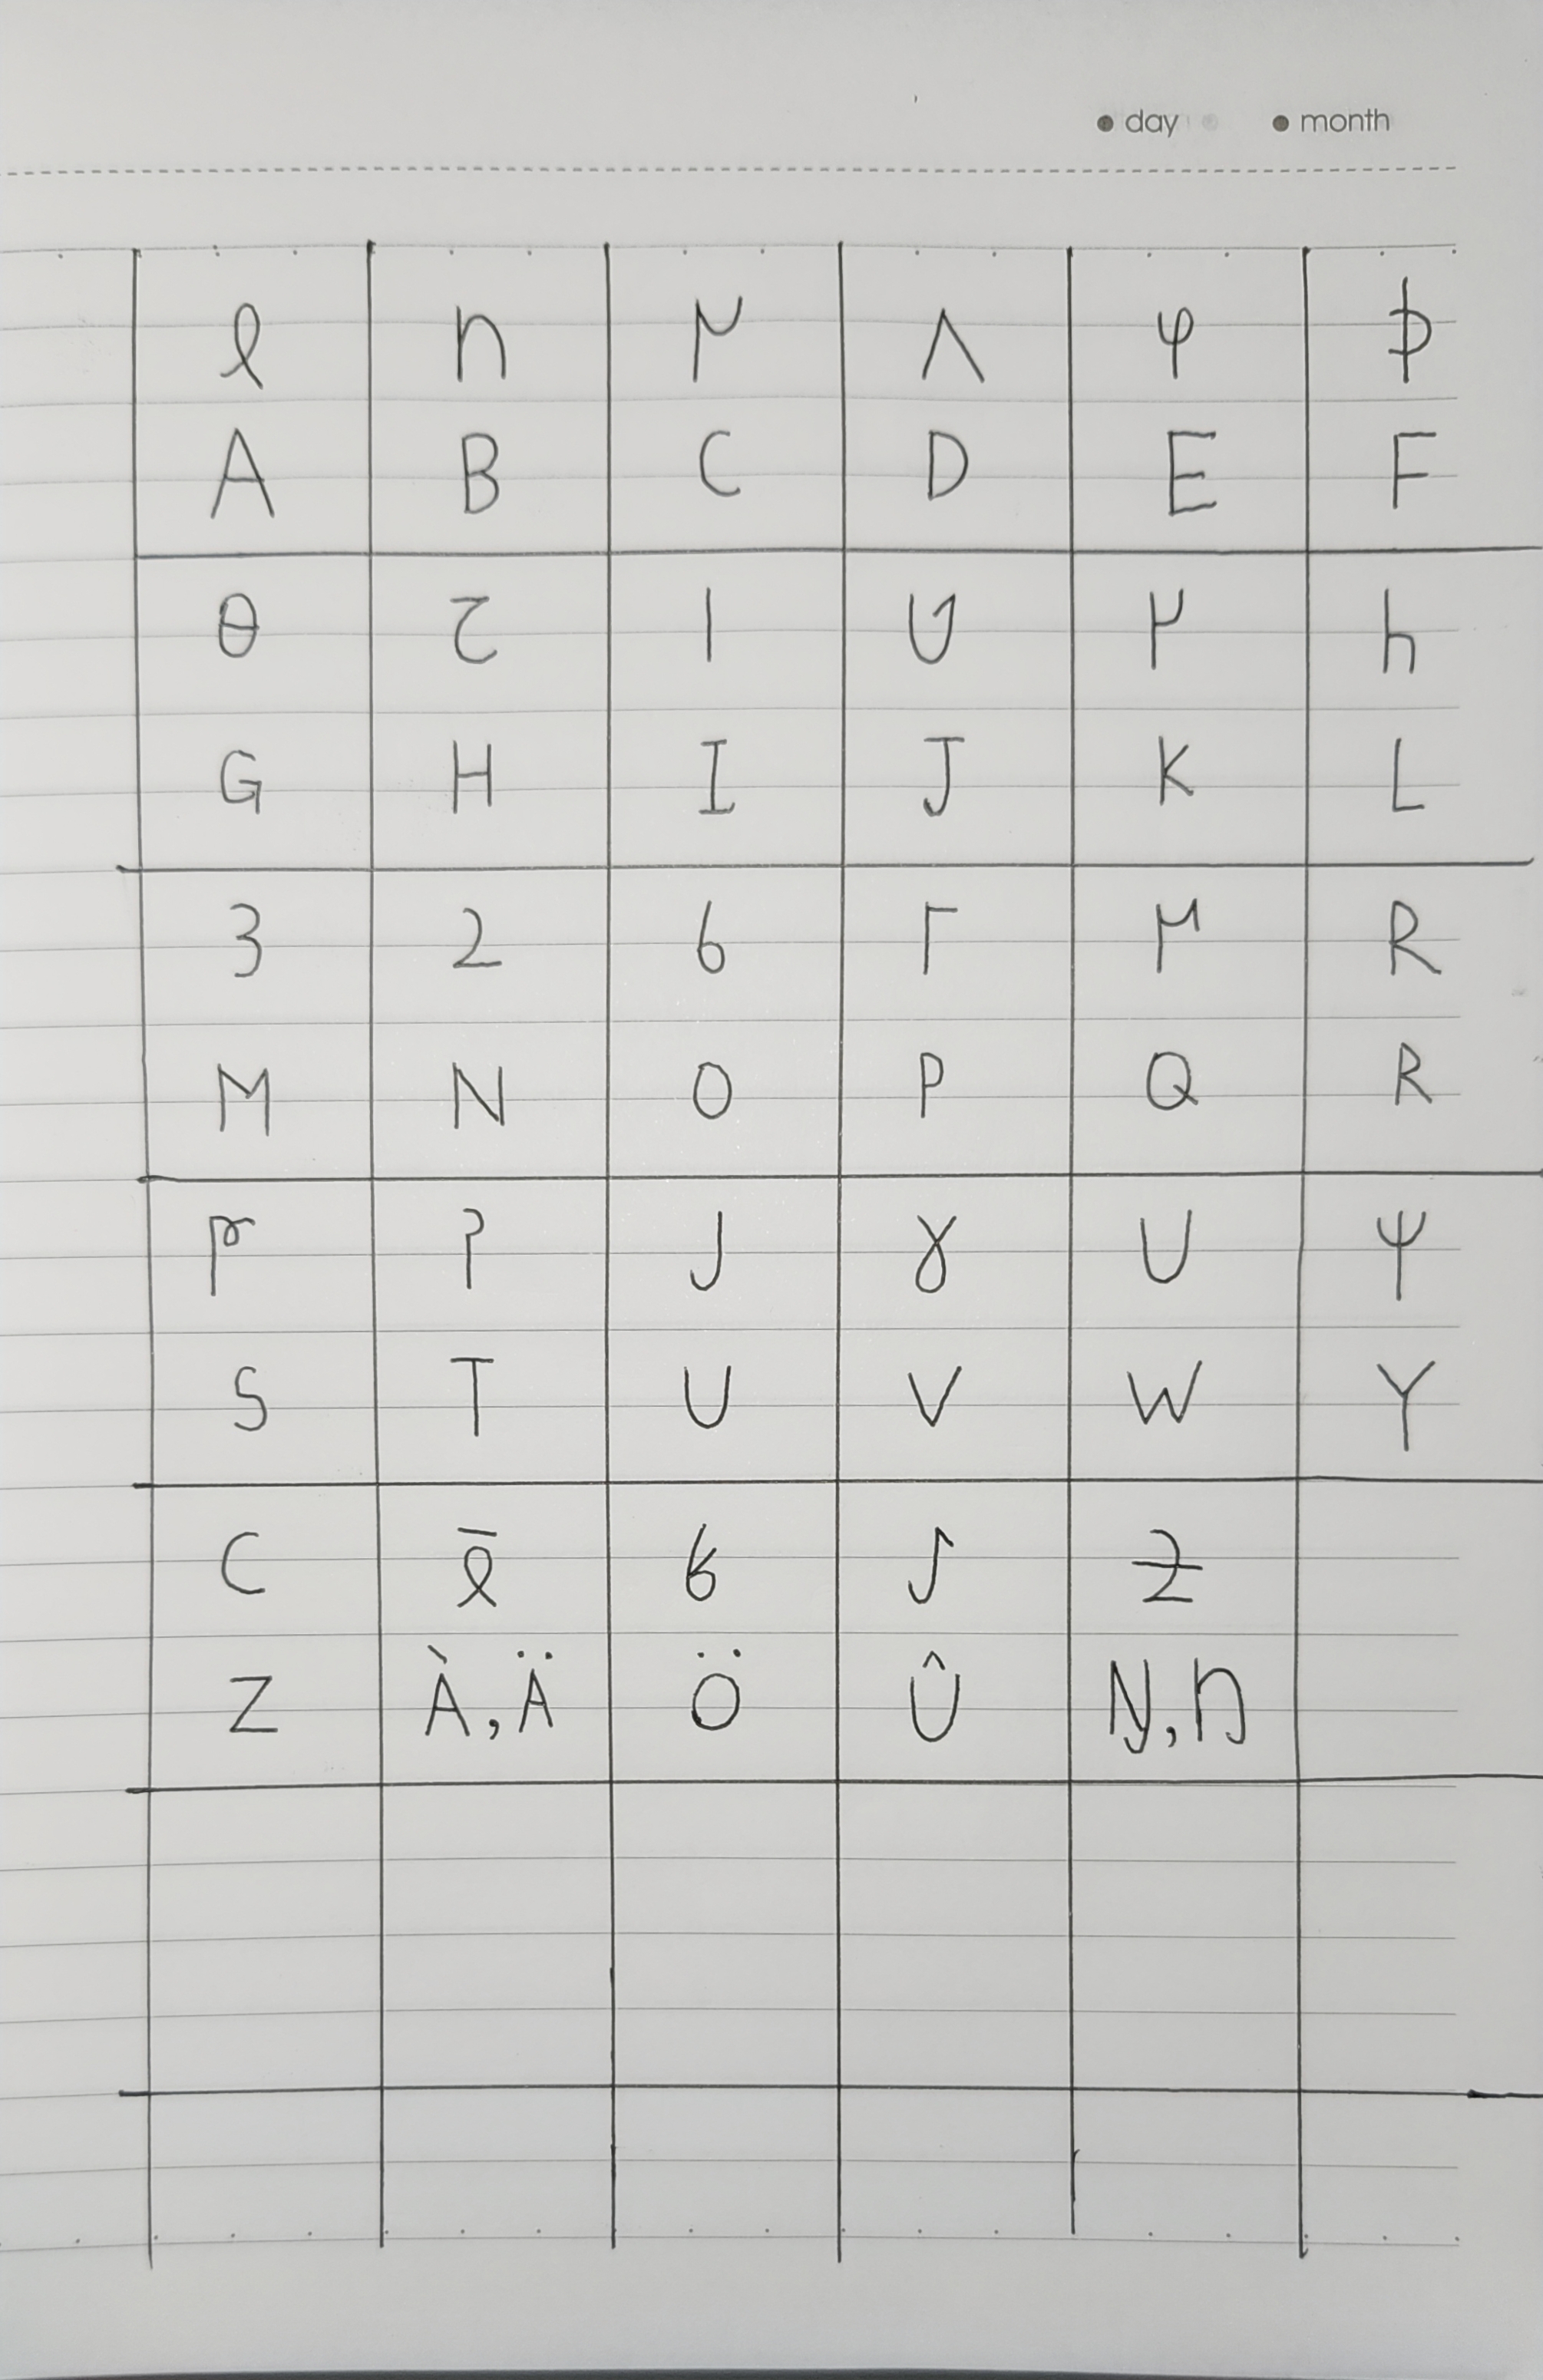 day month
ℓ n Ɲ Λ φ Ϸ
A B C D E F
θ Ꚍ I U Ɥ h
G H I J K L
3 2 6 Γ R
M N O P Q R
ʔ J ɣ U Ψ
S T U V W Y
C ℓ̄ 6 Ƶ
Z À, Ä Ö Û Ŋ, Ŋ